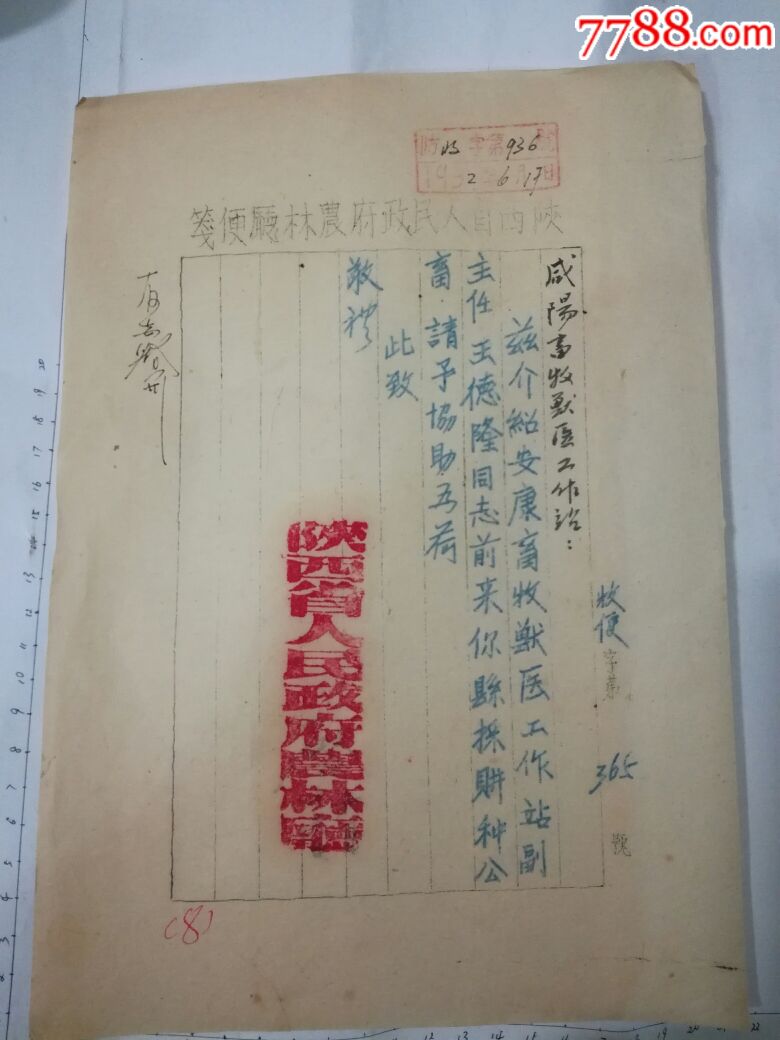 7788.com
收字第936號
1952 6 17日
陝西省人民政府農林廳便箋
牧便字第365號
咸陽畜牧獸医工作站：
兹介紹安康畜牧獸医工作站副
主任王德隆同志前来你縣採購种公
畜·請予協助为荷
此致
敬礼
陝西省人民政府農林廳
(8)